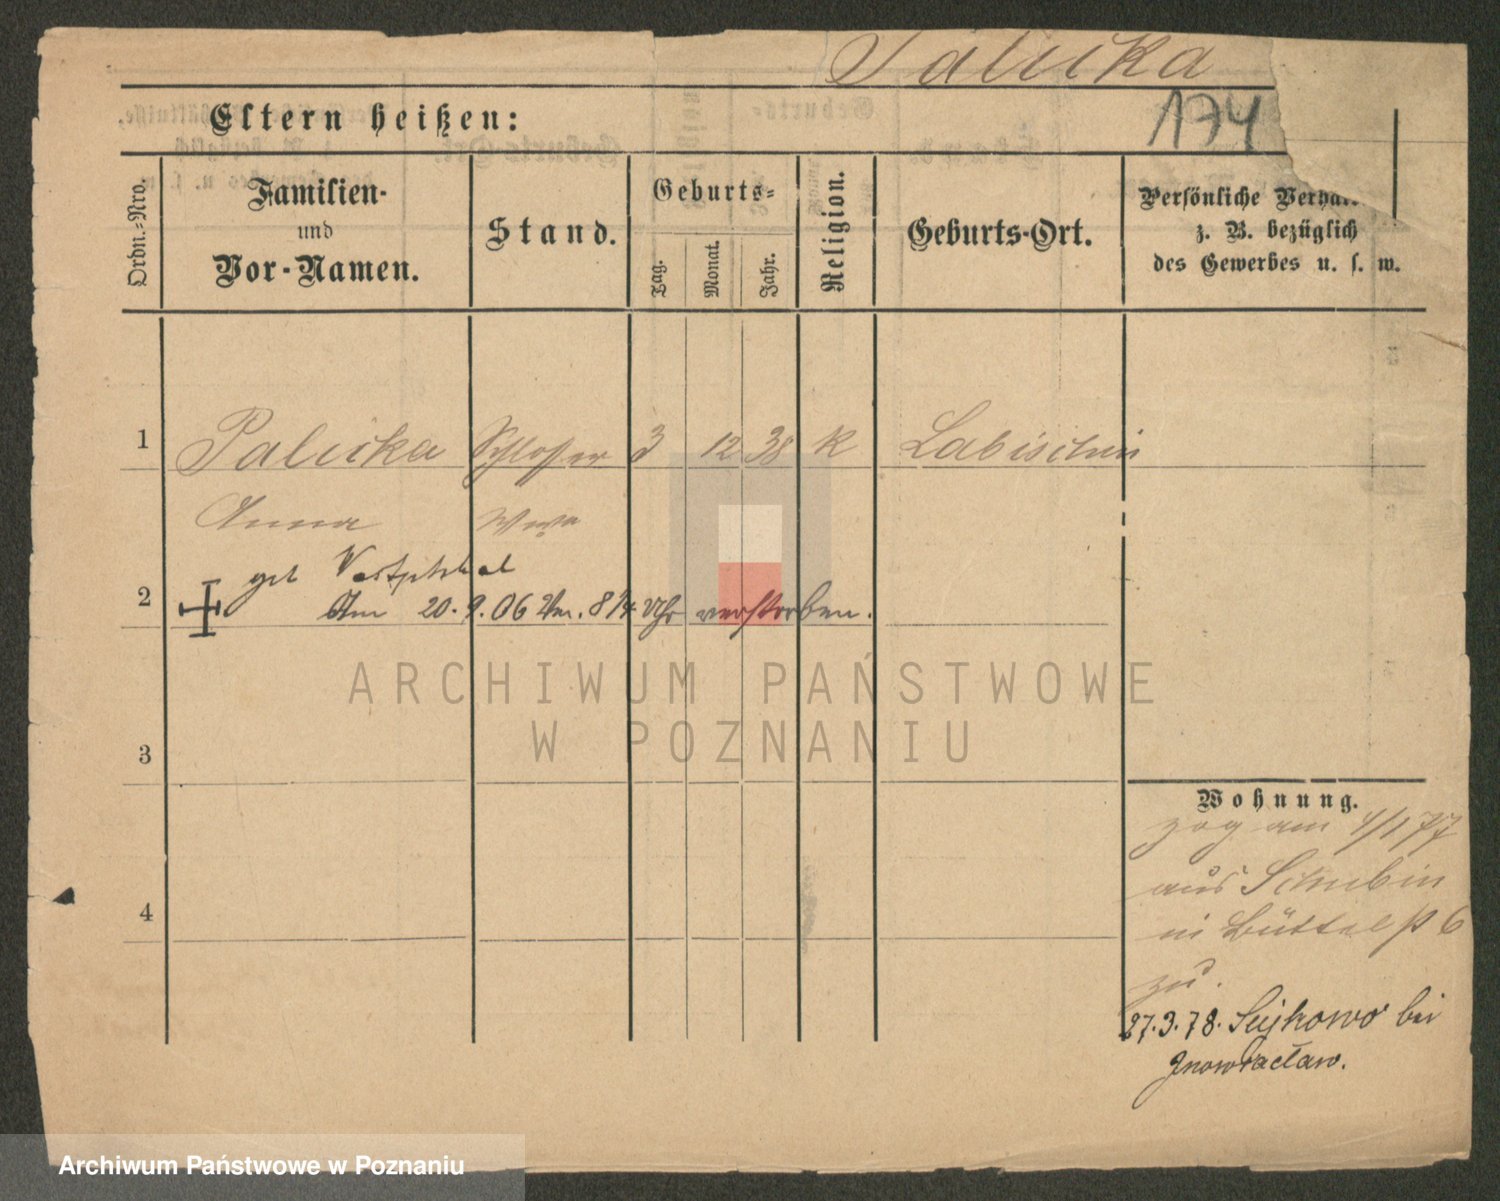 Palucka
174
Eltern heißen:
Ordn.-Nro.
Familien-
und
Vor-Namen.
Stand.
Geburts-
Tag.
Monat.
Jahr.
Religion.
Geburts-Ort.
Persönliche Verhä
z. B. bezüglich
des Gewerbes u. s. w.
1 Palucka Schlosser 3 12 38 K Labischin
Anna Wwe
geb Westphal
2 Am 20. 9. 06 Vm. 8 1/4 Uhr verstorben.
3
Wohnung.
zog am 4/1 77
aus Schubin
in Büttel 6
zu.
4
27.3.78. bei
Inowracław.
ARCHIWUM PAŃSTWOWE
W POZNANIU
Archiwum Państwowe w Poznaniu